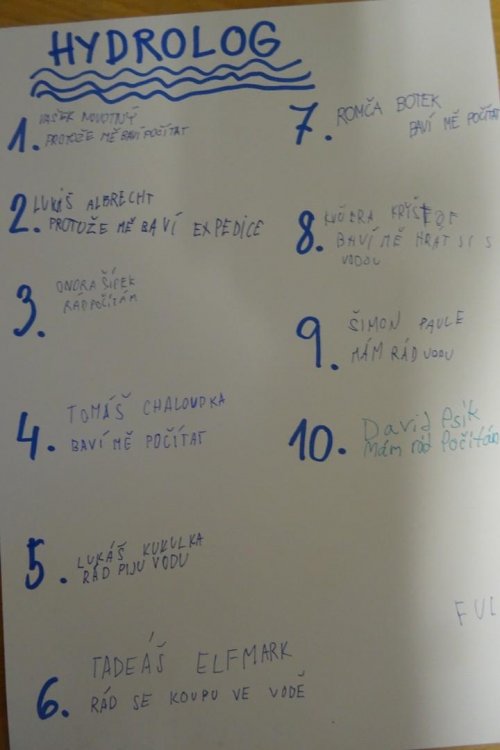 HYDROLOG
1. VAŠEK NOVOTNÝ
PROTOŽE MĚ BAVÍ POČÍTAT
2. LUKÁŠ ALBRECHT
PROTOŽE MĚ BAVÍ EXPEDICE
3. ONDRA ŠÍPEK
RÁD POČÍTÁM
4. TOMÁŠ CHALOUPKA
BAVÍ MĚ POČÍTAT
5. LUKÁŠ KUKULKA
RÁD PIJU VODU
6. TADEÁŠ ELFMARK
RÁD SE KOUPU VE VODĚ
7. ROMČA BOTEK
BAVÍ MĚ POČÍTAT
8. KUČERA KRYŠTOF
BAVÍ MĚ HRAT SI S
VODOU
9. ŠIMON PAULE
MÁM RÁD VODU
10. David Psík
Mám rád Počítán
FUL